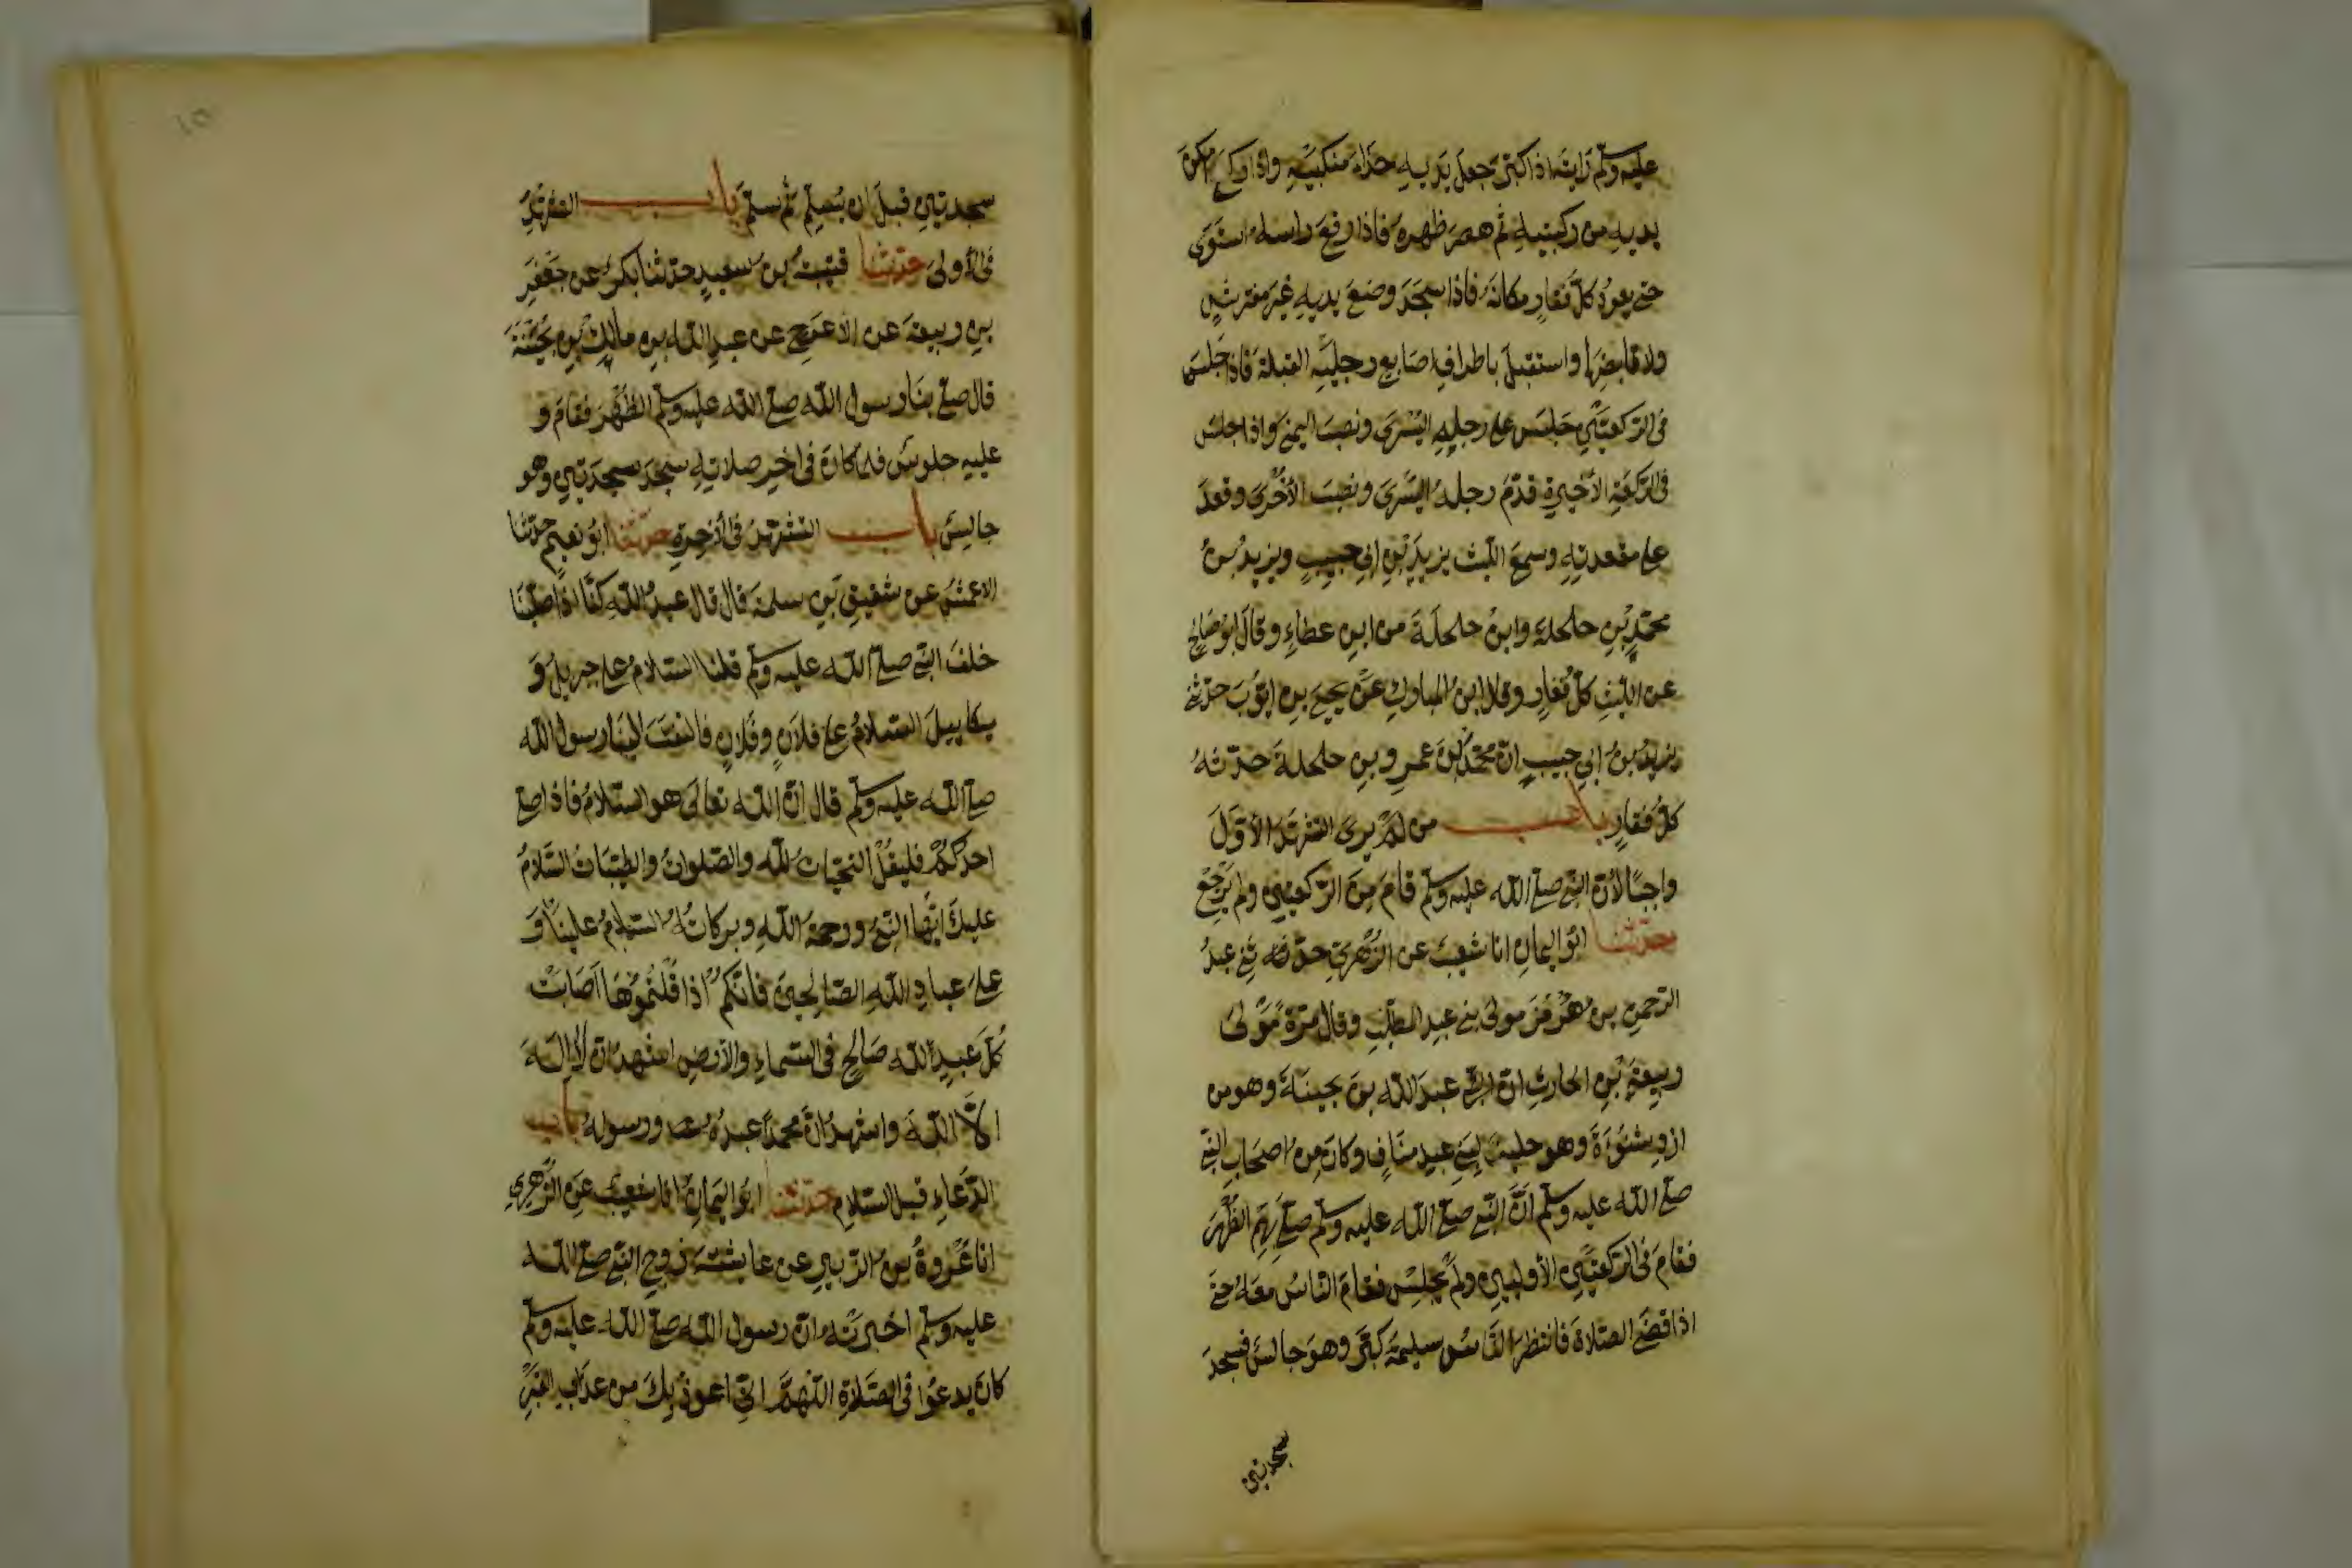 عليه وسلم رايته اذا كبر جعل يديه حذاء منكبيه واذا ركع امكن
يديه من ركبتيه ثم هصر ظهره فاذا رفع راسه استوى
حتى يعود كل فقار مكانه فاذا سجد وضع يديه غير مفترش
ولا قابضها واستقبل باطراف اصابع رجليه القبلة فاذا جلس
فى الركعتين جلس على رجله اليسرى ونصب اليمنى واذا جلس
فى الركعة الاخيرة قدم رجله اليسرى ونصب الاخرى وقعد
على مقعدته وسمع الليث يزيد بن ابي حبيب ويزيد بن
محمد بن حلحلة وابن حلحلة من ابن عطاء وقال ابو صالح
عن الليث كل فقار وقال ابن المبارك عن يحيى بن ايوب حدثني
يزيد بن ابي حبيب ان محمد بن عمرو بن حلحلة حدثه
كل فقار باب من لم يرى التشهد الاول
واجبا لان النبي صلى الله عليه وسلم قام من الركعتين ولم يرجع
حدثنا ابو اليمان انا شعيب عن الزهري حدثني عبد
الرحمن بن هرمز مولى بني عبد المطلب وقال مرة مولى
ربيعة بن الحارث ان عبد الله بن بحينة وهو من
ازد شنوءة وهو حليف لبني عبد مناف وكان من اصحاب النبي
صلى الله عليه وسلم ان النبي صلى الله عليه وسلم صلى بهم الظهر
فقام فى الركعتين الاوليين ولم يجلس فقام الناس معه حتى
اذا قضى الصلاة فانتظر الناس تسليمه كبر وهو جالس فسجد
سجدتين
سجدتين قبل ان يسلم ثم سلم باب التشهد
فى الاولى حدثنا قتيبة بن سعيد حدثنا بكر عن جعفر
بن ربيعة عن الاعرج عن عبد الله بن مالك بن بحينة
قال صلى بنا رسول الله صلى الله عليه وسلم الظهر فقام و
عليه جلوس فلما كان فى اخر صلاته سجد سجدتين وهو
جالس باب التشهد فى الاخرة حدثنا ابو نعيم حدثنا
الاعمش عن شقيق بن سلمة قال قال عبد الله كنا اذا صلينا
خلف النبي صلى الله عليه وسلم قلنا السلام على جبريل و
ميكاييل السلام على فلان وفلان فالتفت الينا رسول الله
صلى الله عليه وسلم قال ان الله تعالى هو السلام فاذا صلى
احدكم فليقل التحيات لله والصلوات والطيبات السلام
عليك ايها النبي ورحمة الله وبركاته السلام علينا و
على عباد الله الصالحين فانكم اذا قلتموها اصابت
كل عبد لله صالح فى السماء والارض اشهد ان لا اله
الا الله واشهد ان محمدا عبده ورسوله باب
الدعاء قبل السلام حدثنا ابو اليمان انا شعيب عن الزهري
انا عروة بن الزبير عن عايشة زوج النبي صلى الله
عليه وسلم اخبرته ان رسول الله صلى الله عليه وسلم
كان يدعوا فى الصلاة اللهم اني اعوذ بك من عذاب القبر